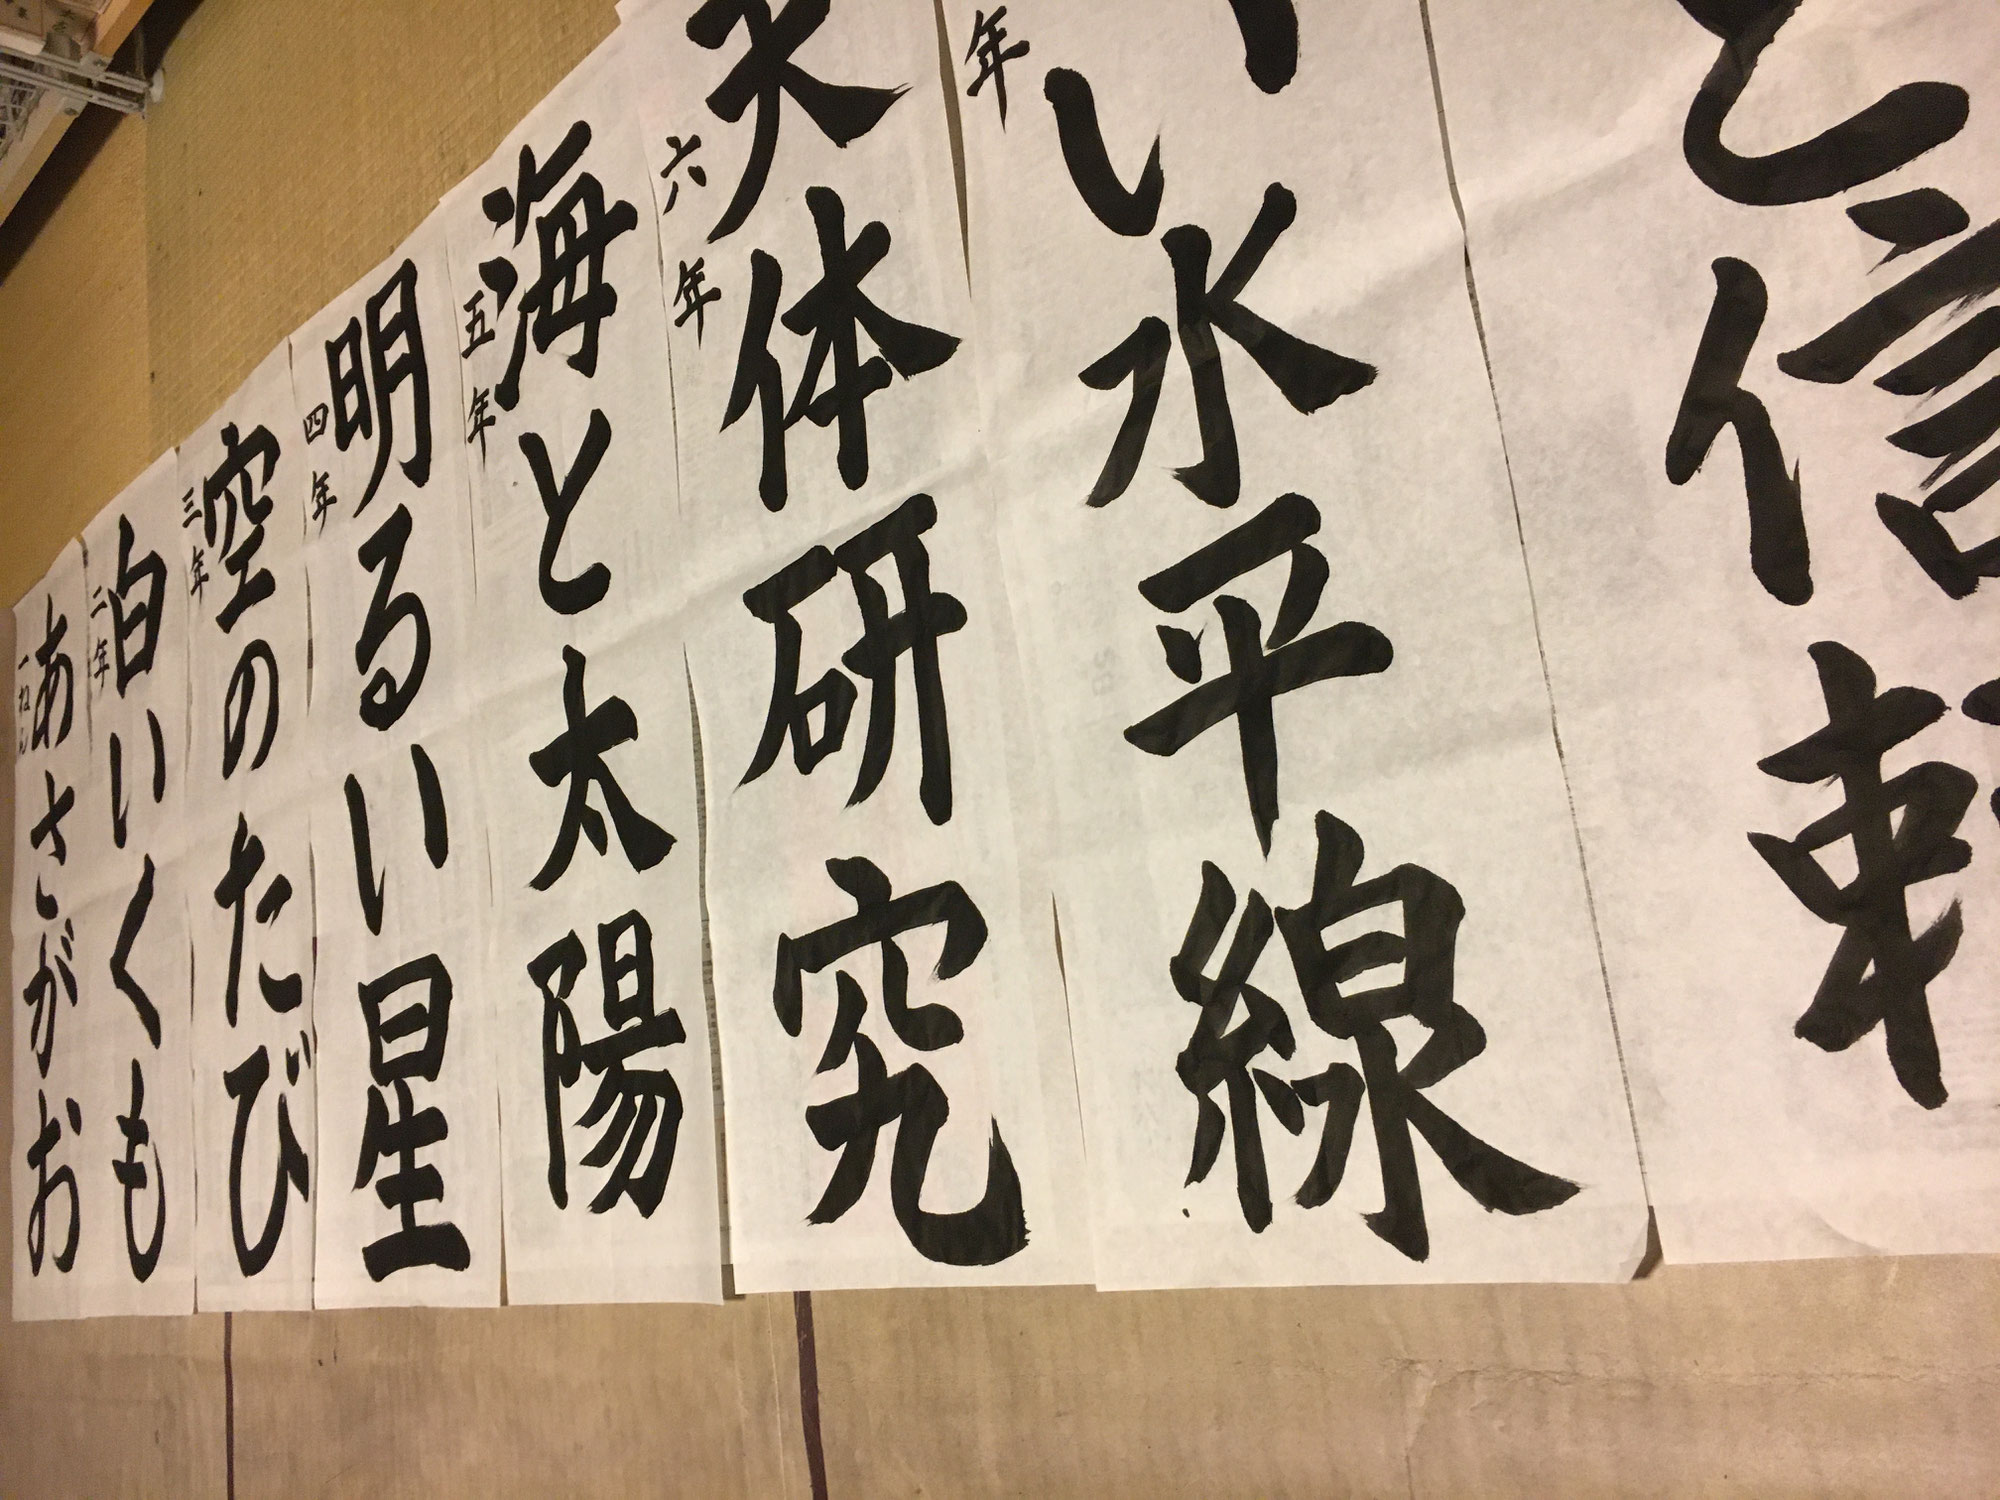 と信頼
い水平線
年
天体研究
六年
海と太陽
五年
明るい星
四年
空のたび
三年
白いくも
二年
あさがお
一ねん